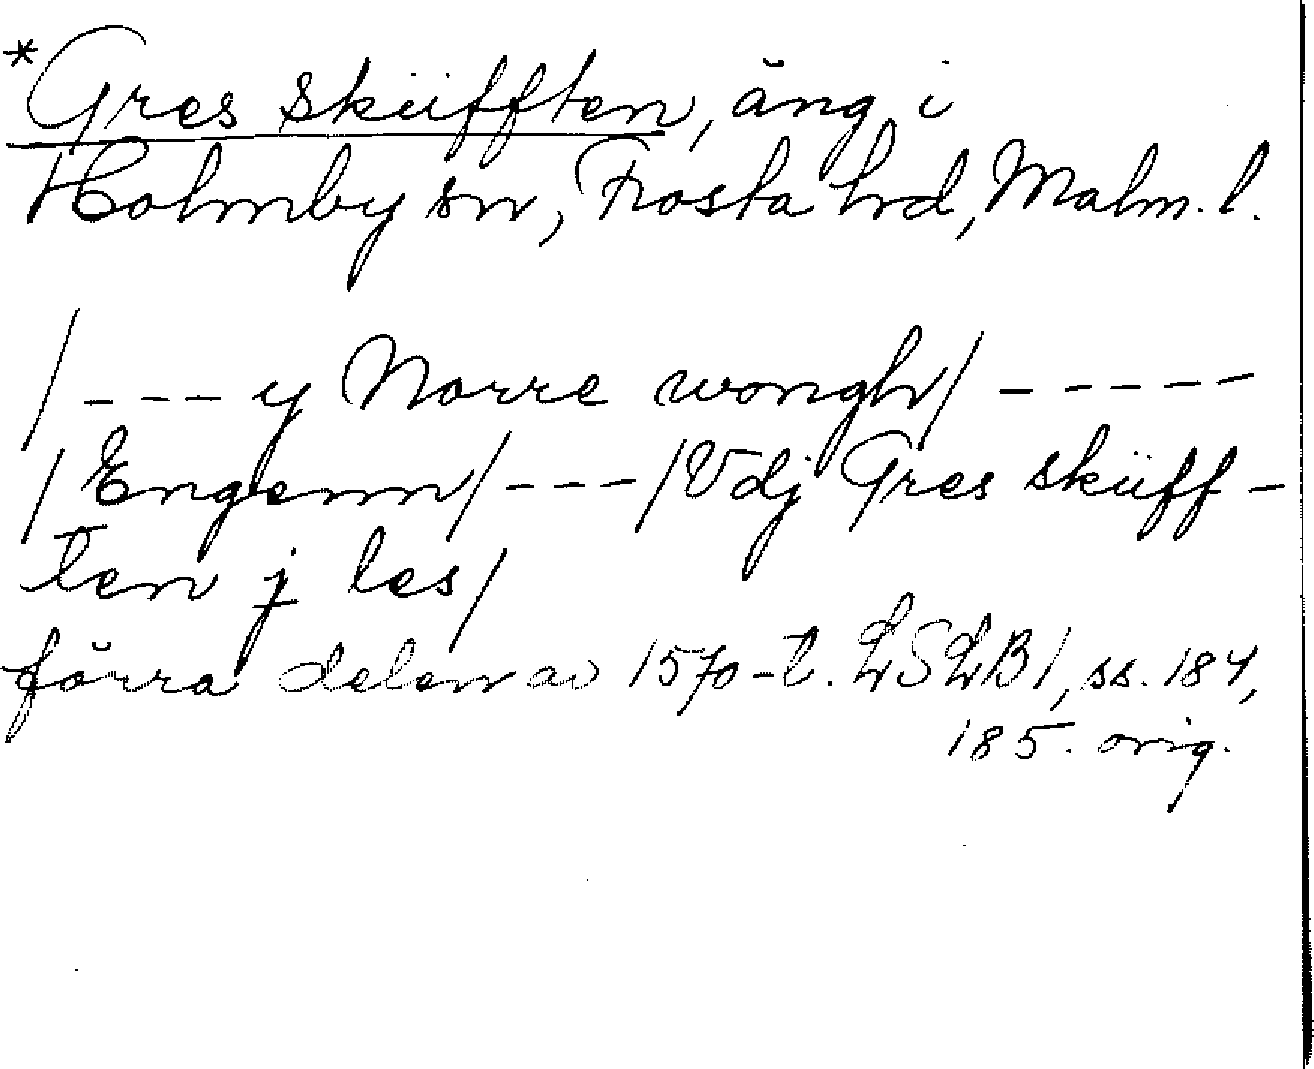 *Gres sküfften, äng i
Holmby sn, Frosta hrd, Malm. l.
/---y Norre wongh/-----
/Engenn/---/Vdj Gres sküff-
ten j les/
förra delen av 1570-t. LSLB1, ss. 184,
185. orig.